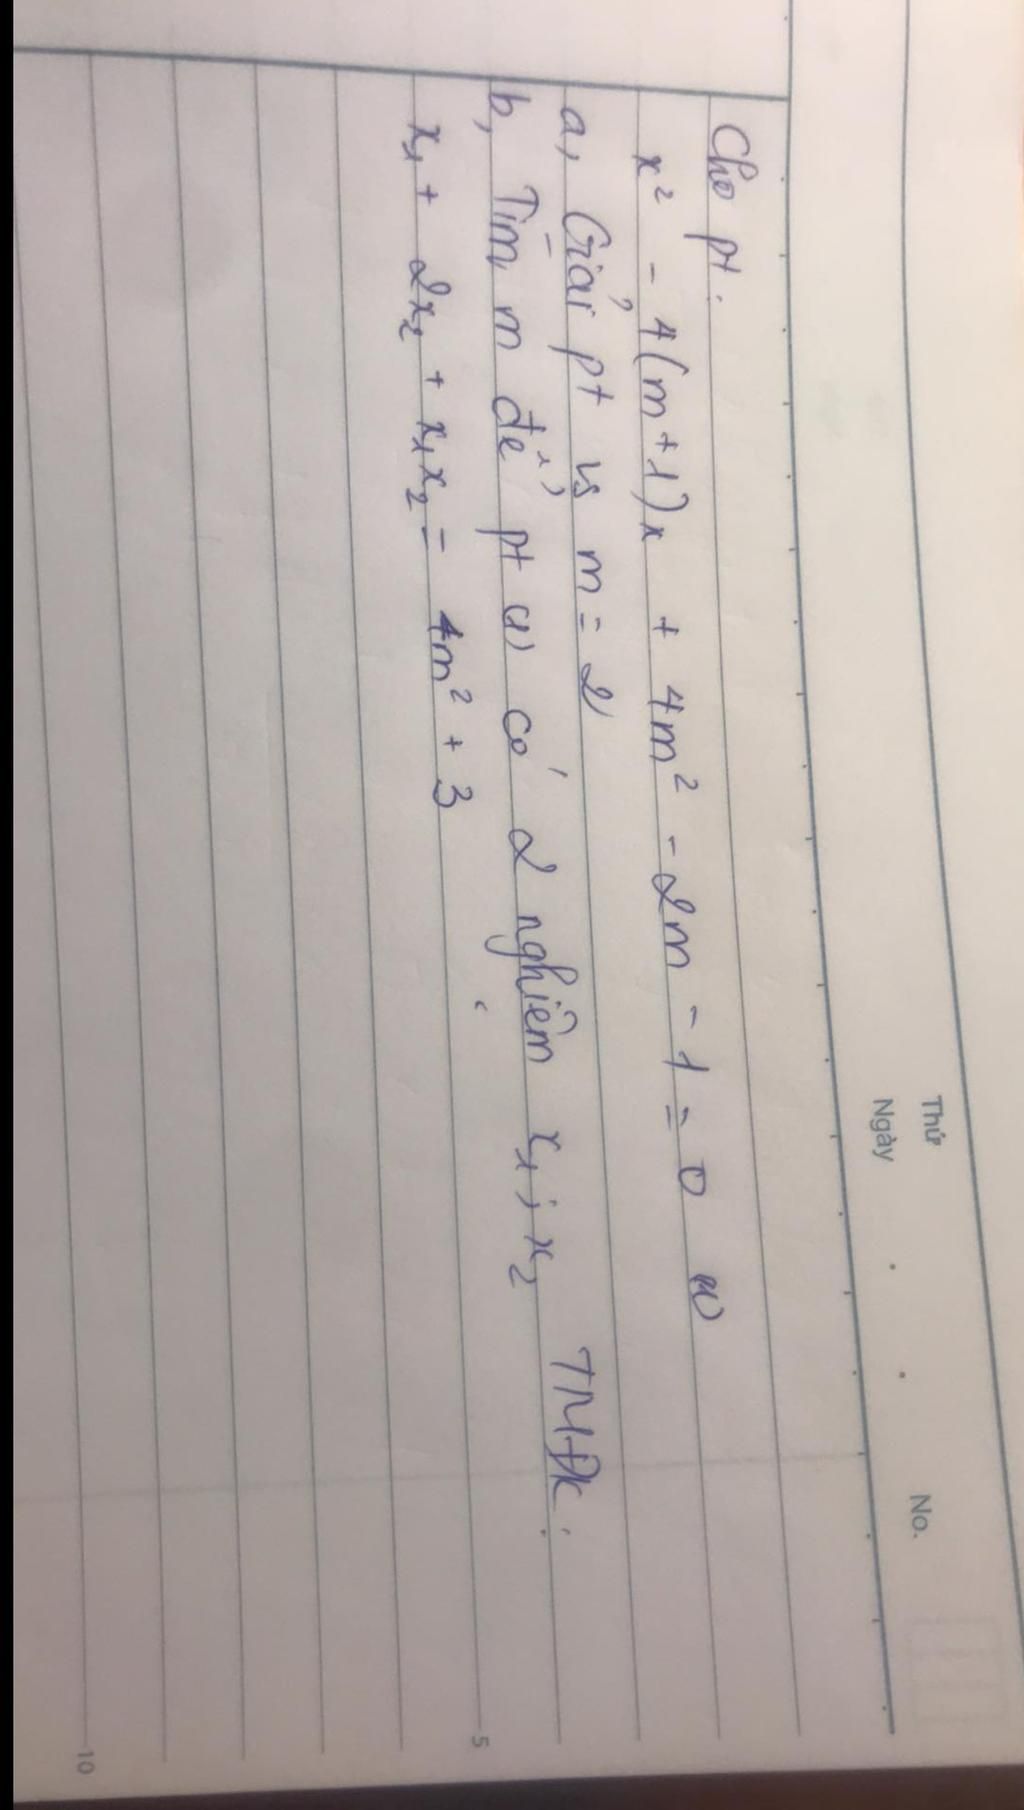 Thứ
Ngày . . No.
Cho pt:
x² - 4(m+1)x + 4m² - 2m - 1 = 0 (1)
a, Giải pt vs m = 2
b, Tìm m để pt (1) có 2 nghiệm x₁; x₂ TMĐK:
x₁ + 2x₂ + x₁x₂ = 4m² + 3
5
10